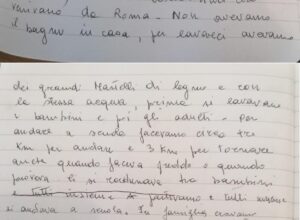 venivano da Roma. Non avevamo
il bagno in casa, per lavarci avevamo
dei grandi Mastelli di legno e con
la stessa acqua, prima si lavavano
i bambini e poi gli adulti. Per
andare a scuola facevamo circa tre
Km per andare e 3 Km per tornare
anche quando faceva freddo o quando
pioveva ci si radunava tra bambini
e tutti insieme partivamo e tutti insieme
si andava a scuola. In famiglia eravamo